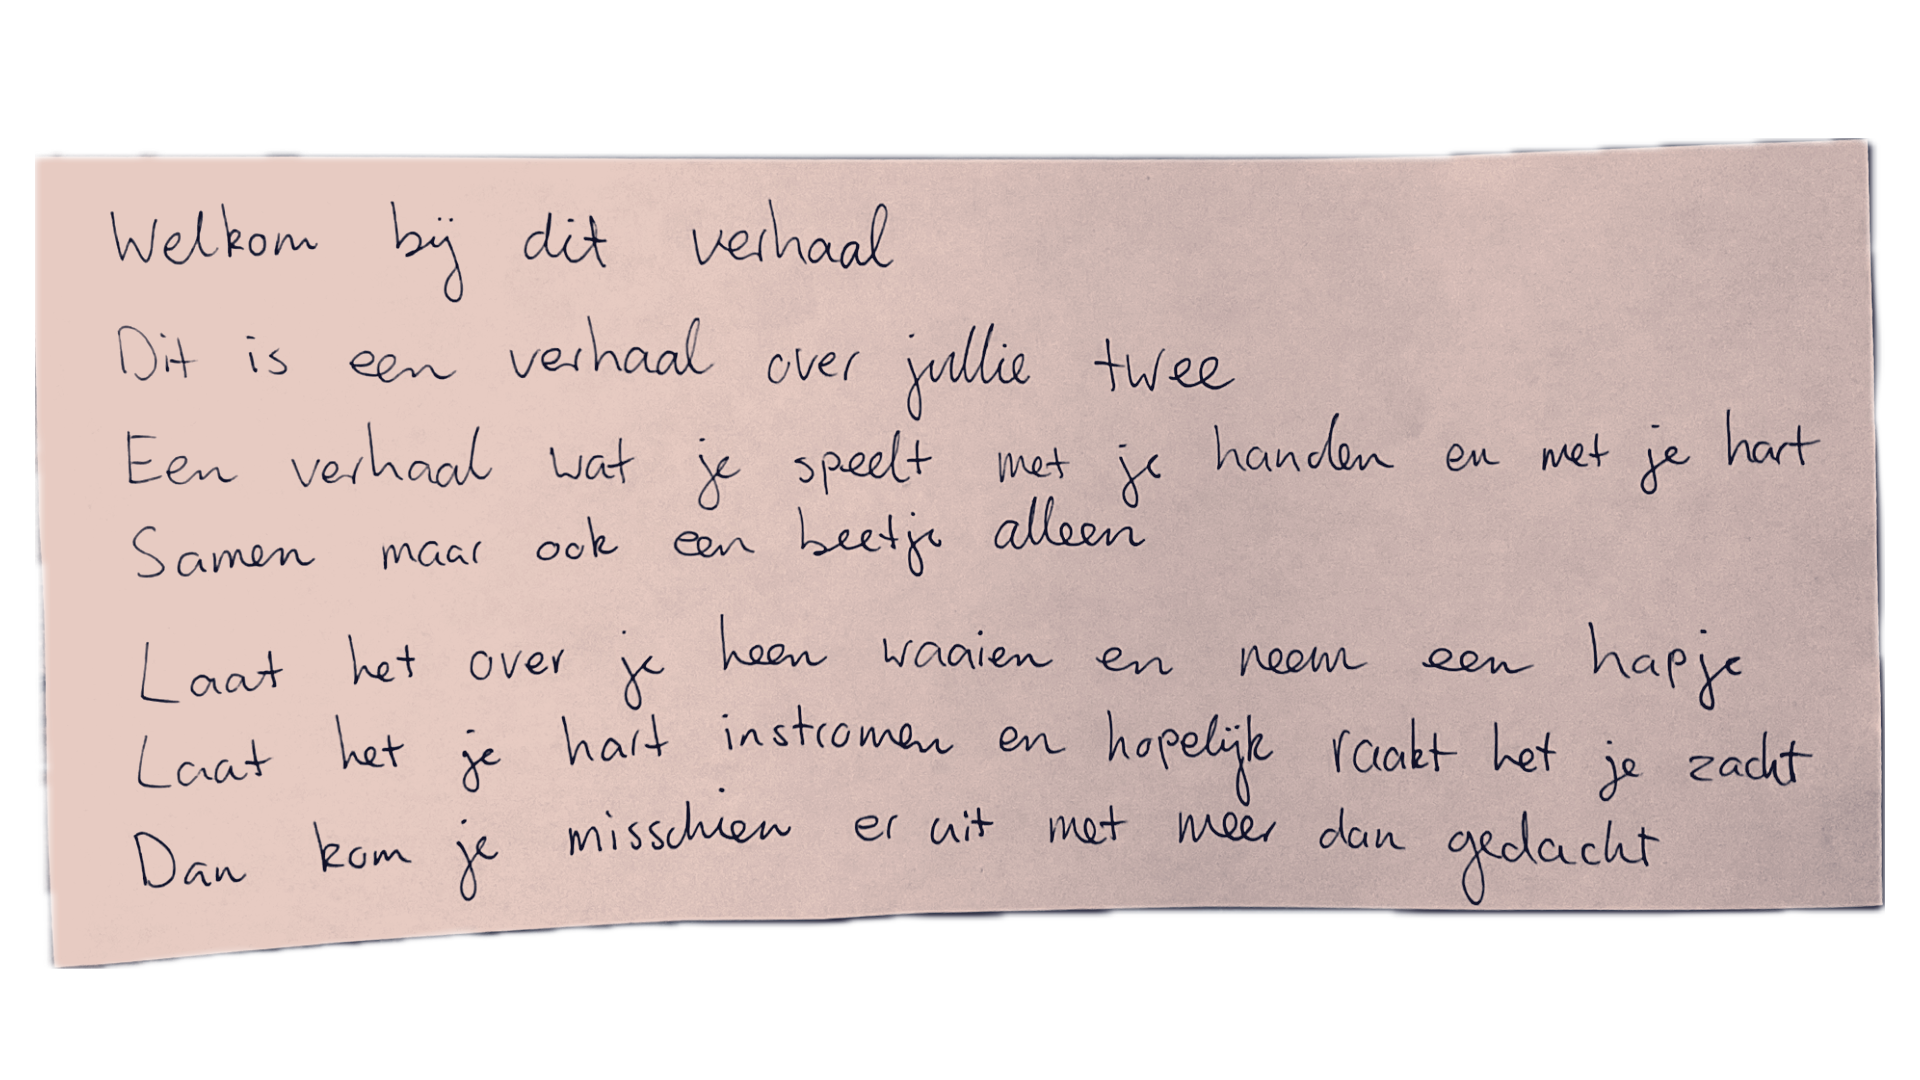 Welkom bij dit verhaal
Dit is een verhaal over jullie twee
Een verhaal wat je speelt met je handen en met je hart
Samen maar ook een beetje alleen
Laat het over je heen waaien en neem een hapje
Laat het je hart instromen en hopelijk raakt het je zacht
Dan kom je misschien er uit met meer dan gedacht